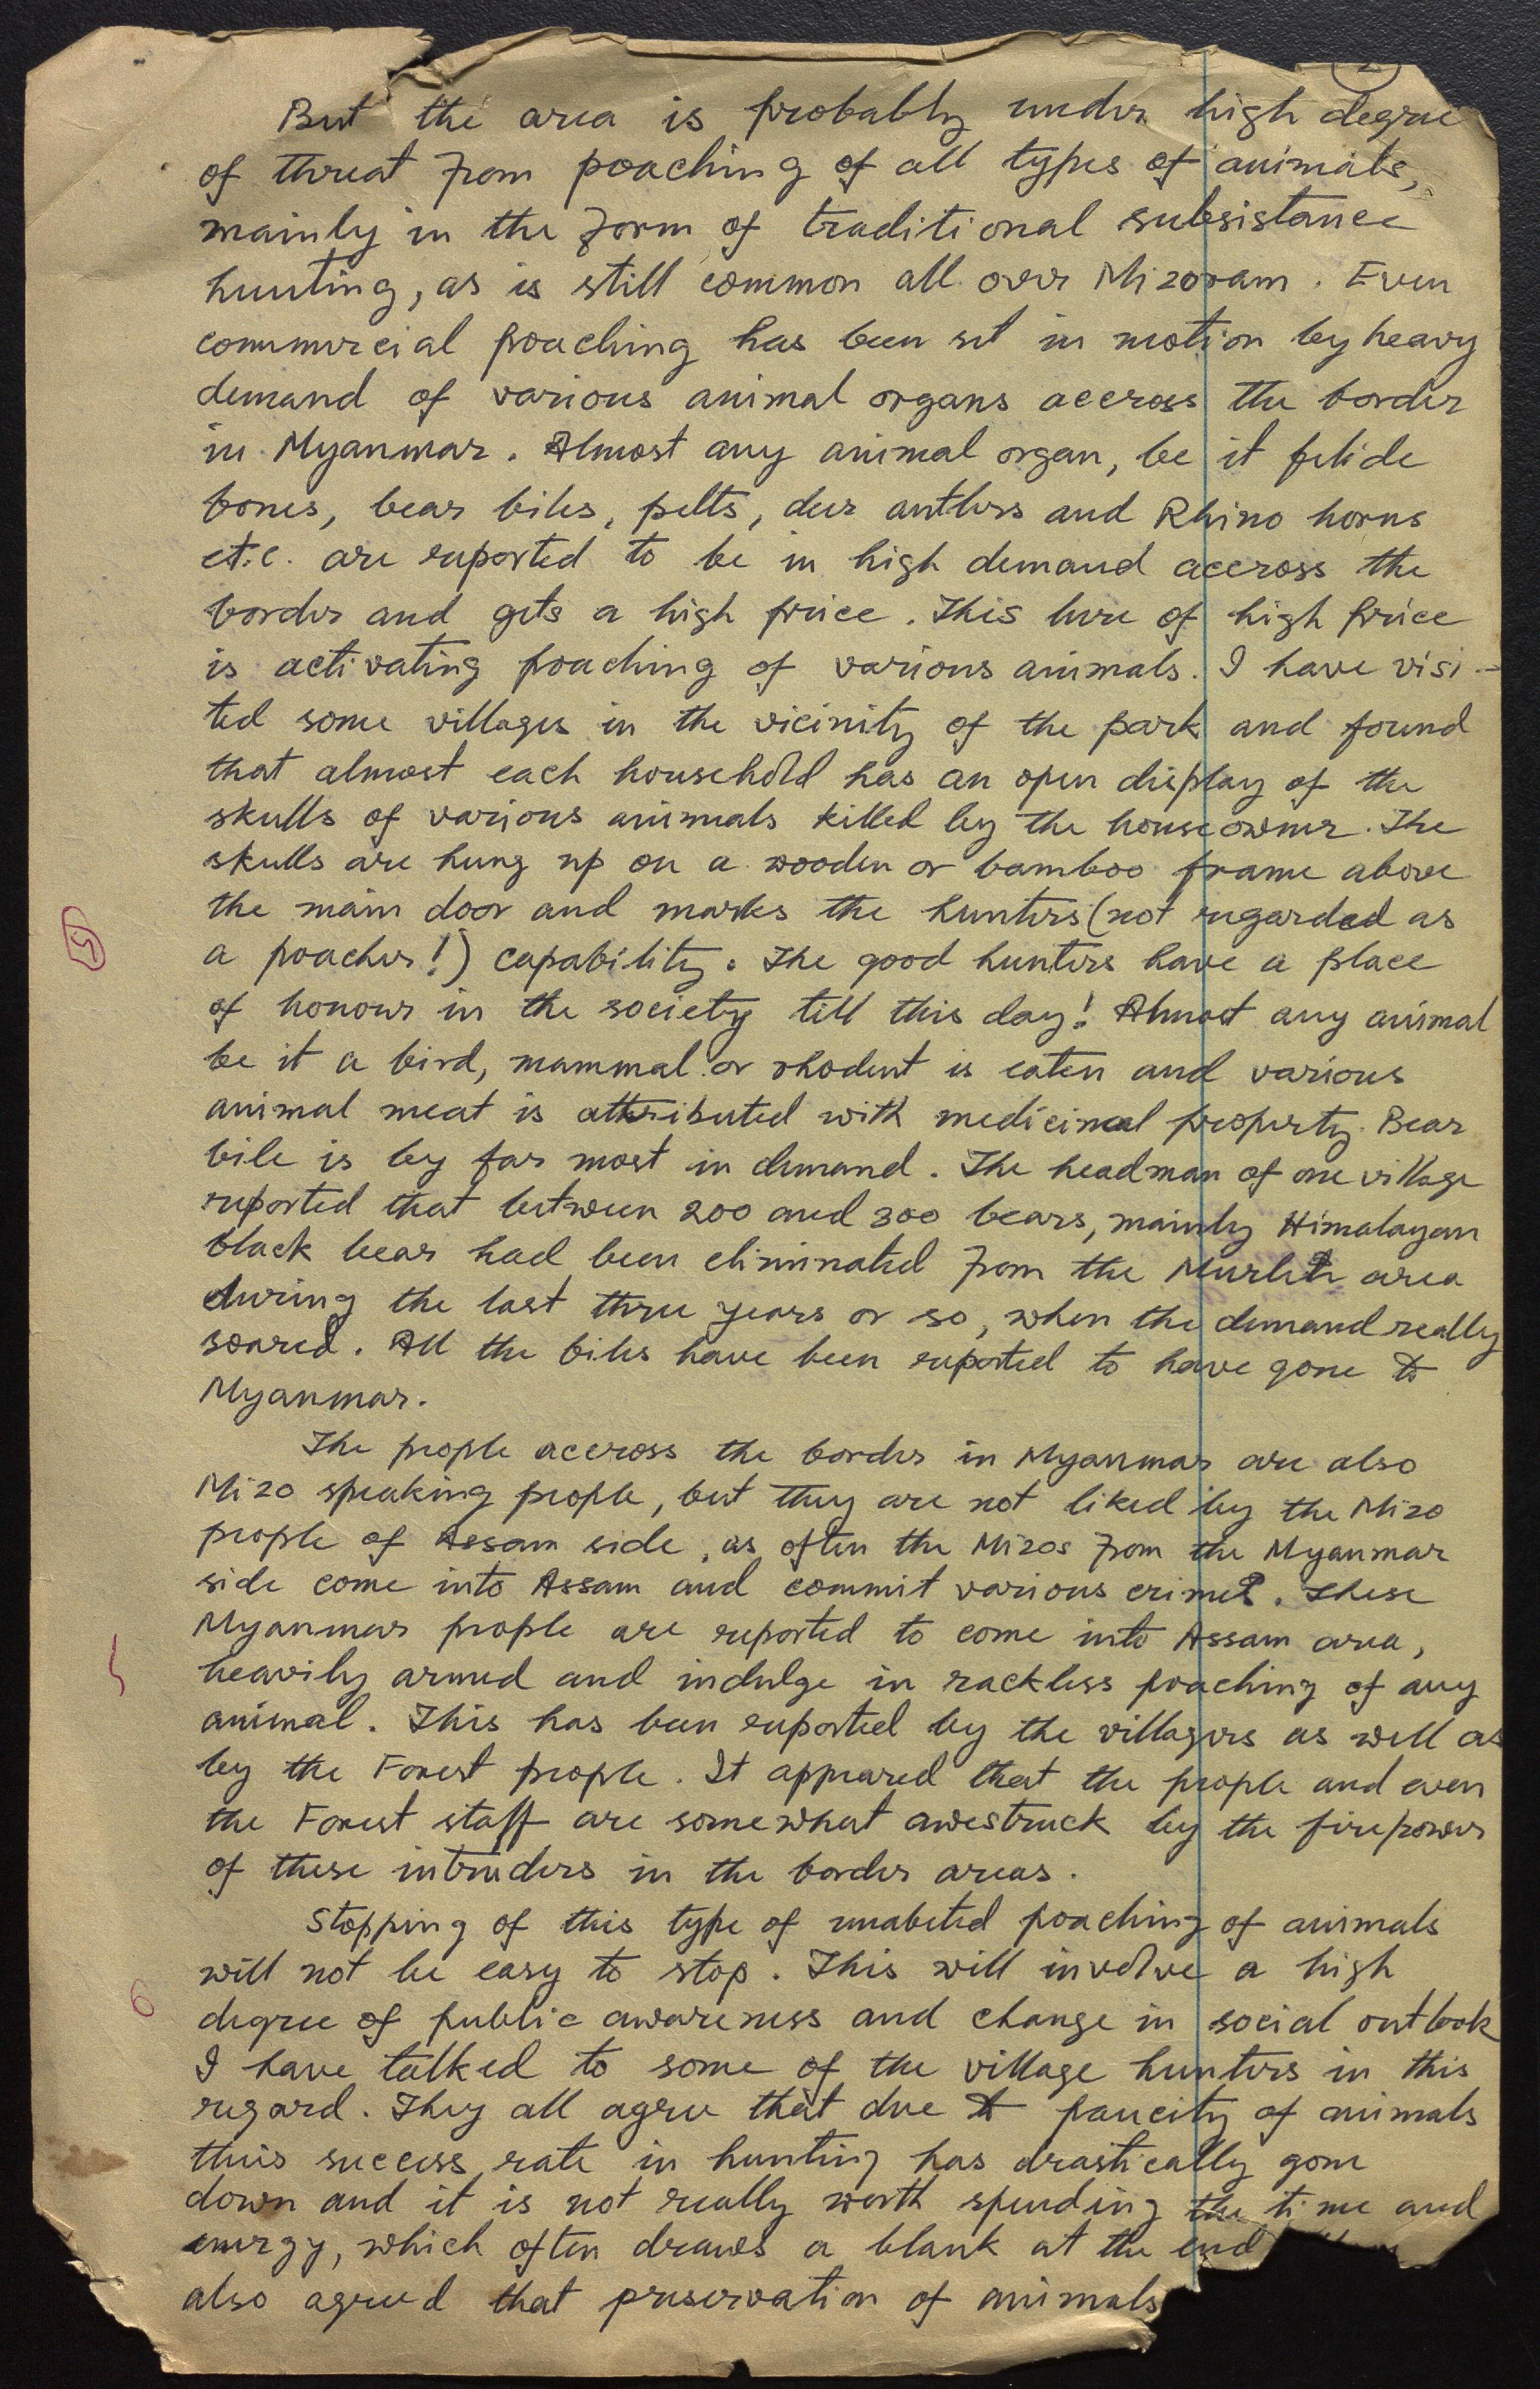 2
But the area is probably under high degree
of threat from poaching of all types of animals,
mainly in the form of traditional subsistance
hunting, as is still common all over Mizoram. Even
commercial poaching has been set in motion by heavy
demand of various animal organs accross the border
in Myanmar. Almost any animal organ, be it felide
bones, bear biles, pelts, deer antlers and Rhino horns
et.c. are reported to be in high demand accross the
border and gets a high price. This lure of high price
is activating poaching of various animals. I have visi-
ted some villages in the vicinity of the park and found
that almost each household has an open display of the
skulls of various animals killed by the house owner. The
skulls are hung up on a wooden or bamboo frame above
the main door and marks the hunters (not regarded as
a poacher!) capability. The good hunters have a place
of honour in the society till this day! Almost any animal
be it a bird, mammal or rhodent is eaten and various
animal meat is attributed with medicinal property. Bear
bile is by far most in demand. The headman of one village
reported that between 200 and 300 bears, mainly Himalayan
black bear had been eliminated from the Murlen area
during the last three years or so, when the demand really
soared. All the biles have been reported to have gone to
Myanmar.
The people accross the border in Myanmar are also
Mizo speaking people, but they are not liked by the Mizo
people of Assam side, as often the Mizos from the Myanmar
side come into Assam and commit various crimes. These
Myanmar people are reported to come into Assam area,
heavily armed and indulge in rackless poaching of any
animal. This has been reported by the villagers as well as
by the Forest people. It appeared that the people and even
the Forest staff are somewhat awestruck by the firepower
of these intruders in the border areas.
Stopping of this type of unabeted poaching of animals
will not be easy to stop. This will involve a high
6
degree of public awareness and change in social outlook
I have talked to some of the village hunters in this
regard. They all agree that due to paucity of animals
their success rate in hunting has drastically gone
down and it is not really worth spending the time and
energy, which often draws a blank at the end
also agreed that preservation of animals